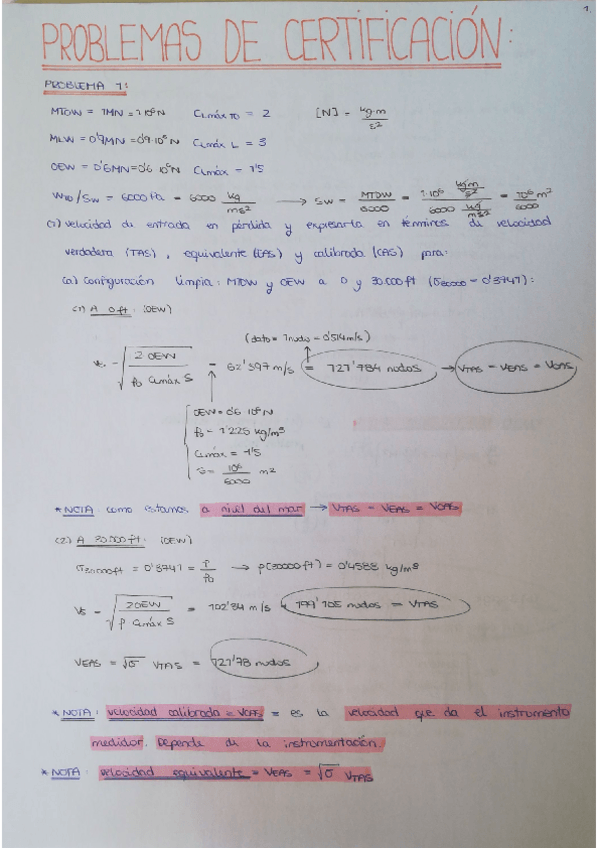 1.
PROBLEMAS DE CERTIFICACIÓN:
PROBLEMA 1:
MTOW = 1MN = 1·10⁶ N CLmáx TO = 2 [N] = kg·m/s²
MLW = 0'9MN = 0'9·10⁶ N CLmáx L = 3
OEW = 0'6MN = 0'6·10⁶ N CLmáx = 1'5
WTO/SW = 6000 Pa = 6000 kg/ms² → SW = MTOW/6000 = 1·10⁶ kgm/s² / 6000 kg/ms² = 10⁶/6000 m²
(1) velocidad de entrada en pérdida y expresarla en términos de velocidad
verdadera (TAS), equivalente (EAS) y calibrada (CAS) para:
(a) Configuración limpia: MTOW y OEW a 0 y 30.000 ft (σ30000 = 0'3747):
(1) A 0 ft: (OEW)
(dato = 1 nudo = 0'514 m/s)
Vs = √(2 OEW / ρ0 CLmáx S) = 62'597 m/s = 121'784 nudos → VTAS = VEAS = VCAS
OEW = 0'6·10⁶ N
ρ0 = 1'225 kg/m³
CLmáx = 1'5
S = 10⁶/6000 m²
* NOTA: como estamos a nivel del mar → VTAS = VEAS = VCAS
(2) A 30.000 ft: (OEW)
σ30000ft = 0'3747 = ρ/ρ0 → ρ(30000ft) = 0'4588 kg/m³
Vs = √(2OEW / ρ CLmáx S) = 102'34 m/s = 199'105 nudos = VTAS
VEAS = √σ VTAS = 121'78 nudos
* NOTA: velocidad calibrada = VCAS = es la velocidad que da el instrumento
medidor. Depende de la instrumentación.
* NOTA: velocidad equivalente = VEAS = √σ VTAS